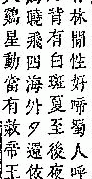 林間性好啼蜀人呼
背有白斑夏至後夜
曉飛四海外夕還依
鷄星動當有赦帝王